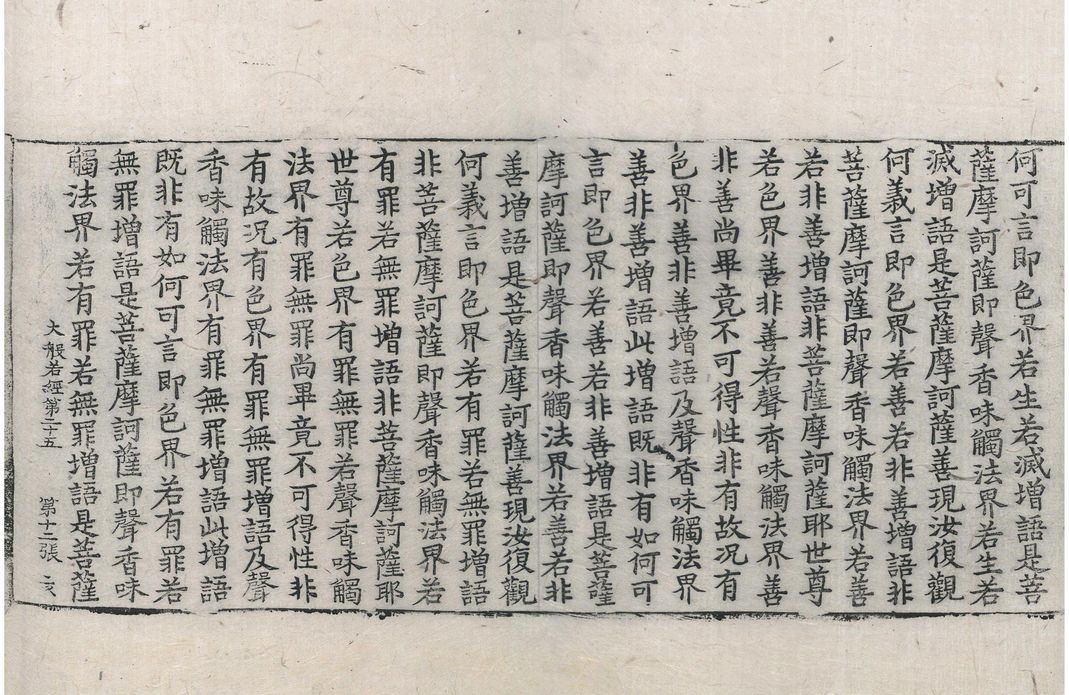 何可言即色界若生若滅增語是菩
薩摩訶薩即聲香味觸法界若生若
滅增語是菩薩摩訶薩善現汝復觀
何義言即色界若善若非善增語非
菩薩摩訶薩即聲香味觸法界若善
若非善增語非菩薩摩訶薩耶世尊
若色界善非善若聲香味觸法界善
非善尚畢竟不可得性非有故况有
色界善非善增語及聲香味觸法界
善非善增語此增語既非有如何可
言即色界若善若非善增語是菩薩
摩訶薩即聲香味觸法界若善若非
善增語是菩薩摩訶薩善現汝復觀
何義言即色界若有罪若無罪增語
非菩薩摩訶薩即聲香味觸法界若
有罪若無罪增語非菩薩摩訶薩耶
世尊若色界有罪無罪若聲香味觸
法界有罪無罪尚畢竟不可得性非
有故况有色界有罪無罪增語及聲
香味觸法界有罪無罪增語此增語
既非有如何可言即色界若有罪若
無罪增語是菩薩摩訶薩即聲香味
觸法界若有罪若無罪增語是菩薩
大般若經第二十五 第十二張 亥